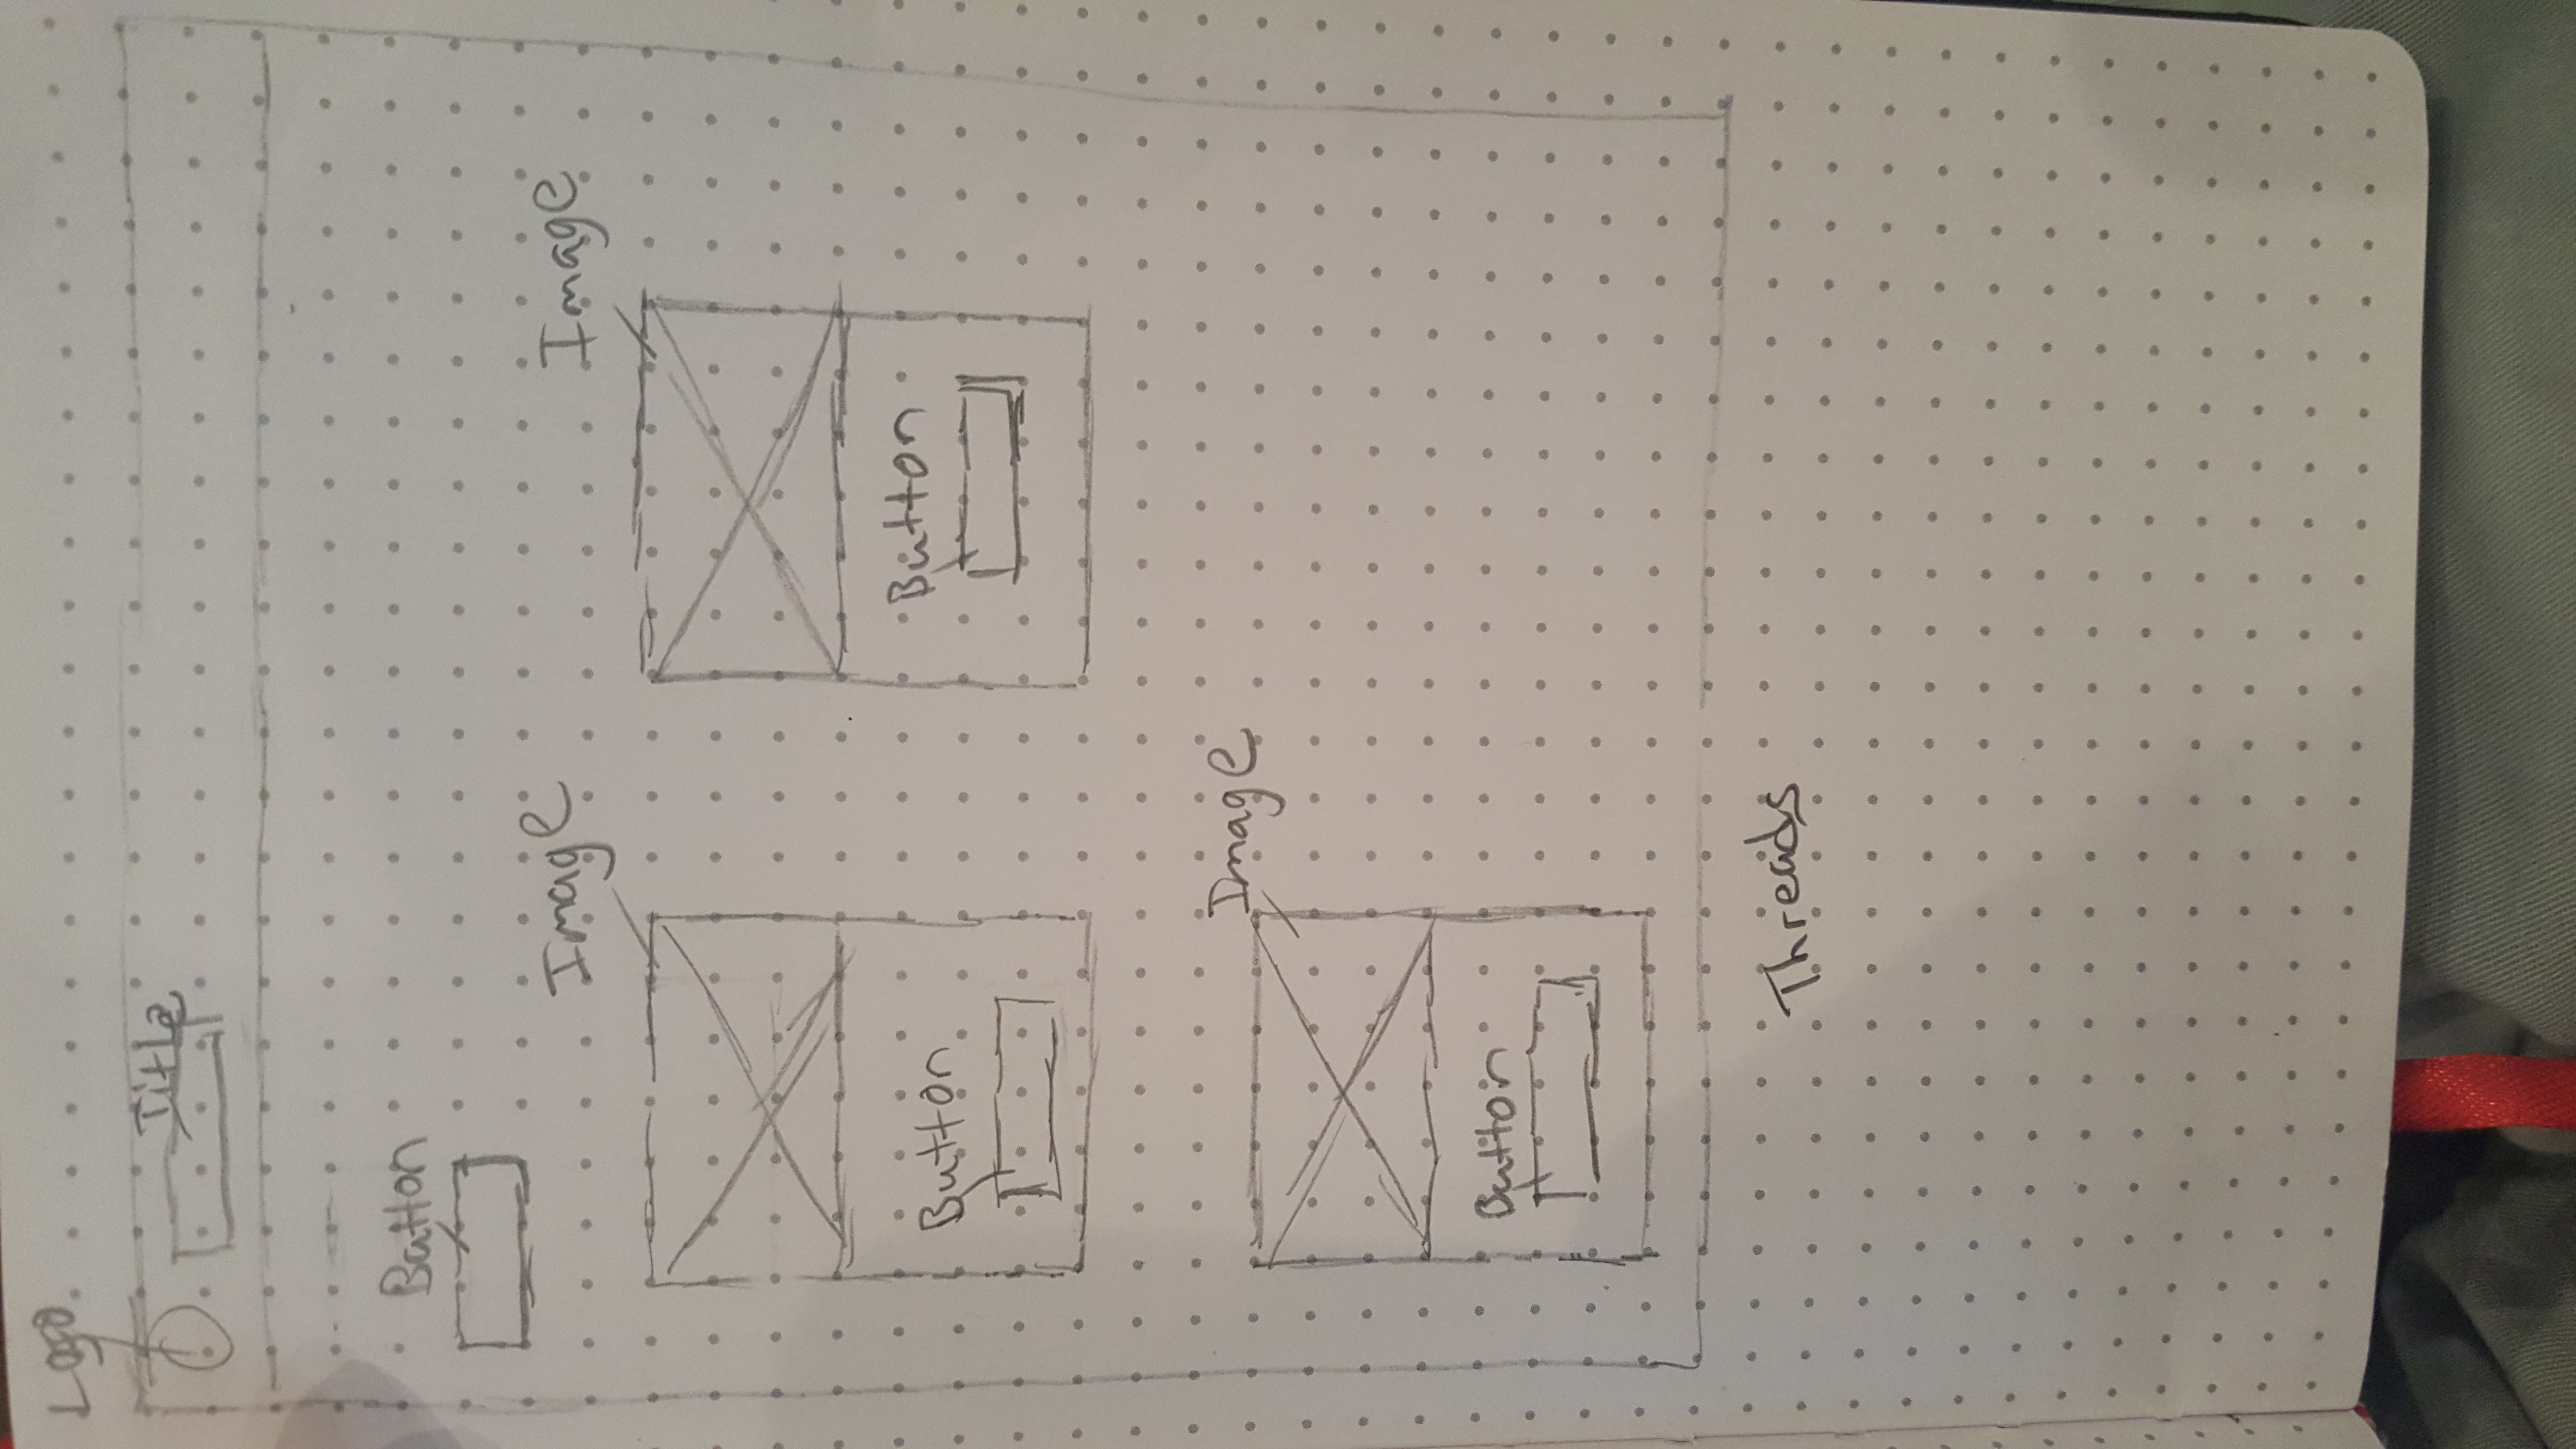 Logo
Title
Button
Image
Image
Button
Button
Image
Button
Threads